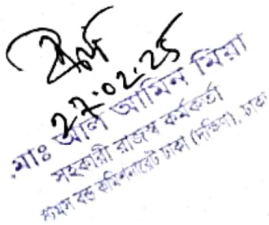 27.02.25
মোঃ আল আমিন মিয়া
সহকারী রাজস্ব কর্মকর্তা
কাস্টমস বন্ড কমিশনারেট ঢাকা (দক্ষিণ), ঢাকা